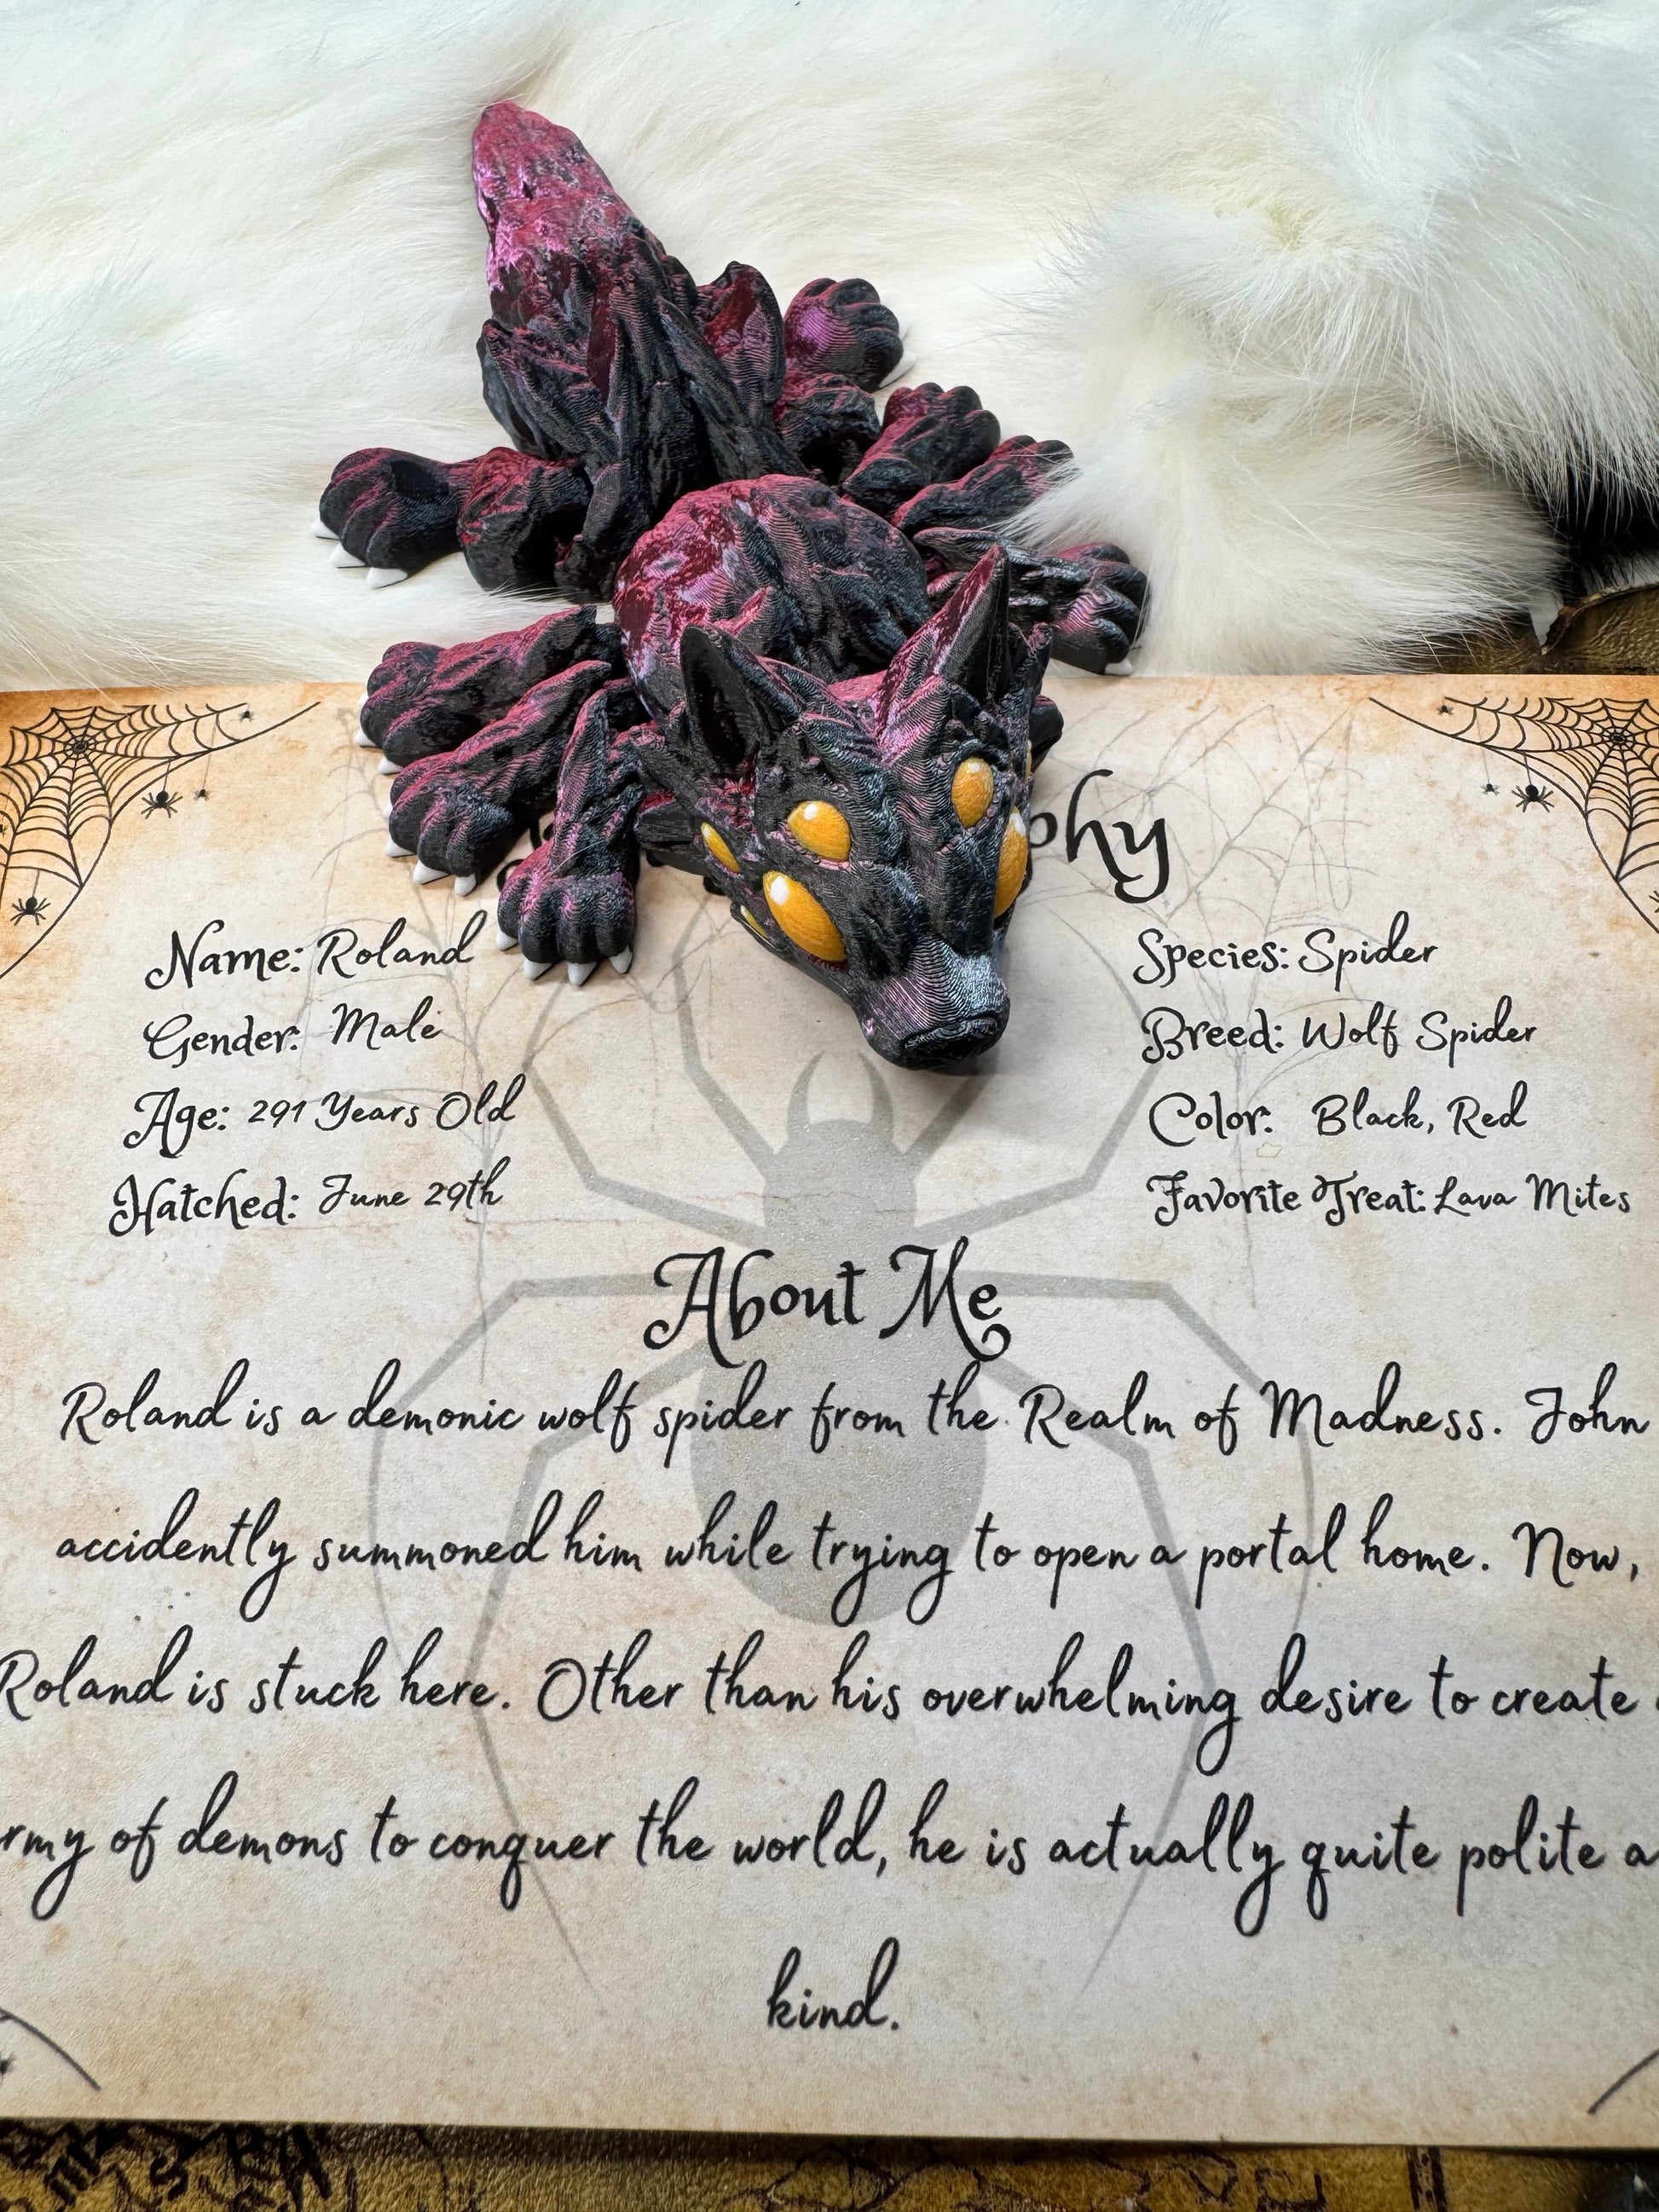 phy
Name: Roland
Gender: Male
Age: 291 Years Old
Hatched: June 29th
Species: Spider
Breed: Wolf Spider
Color: Black, Red
Favorite Treat: Lava Mites
About Me
Roland is a demonic wolf spider from the Realm of Madness. John
accidently summoned him while trying to open a portal home. Now,
Roland is stuck here. Other than his overwhelming desire to create
rmy of demons to conquer the world, he is actually quite polite a
kind.